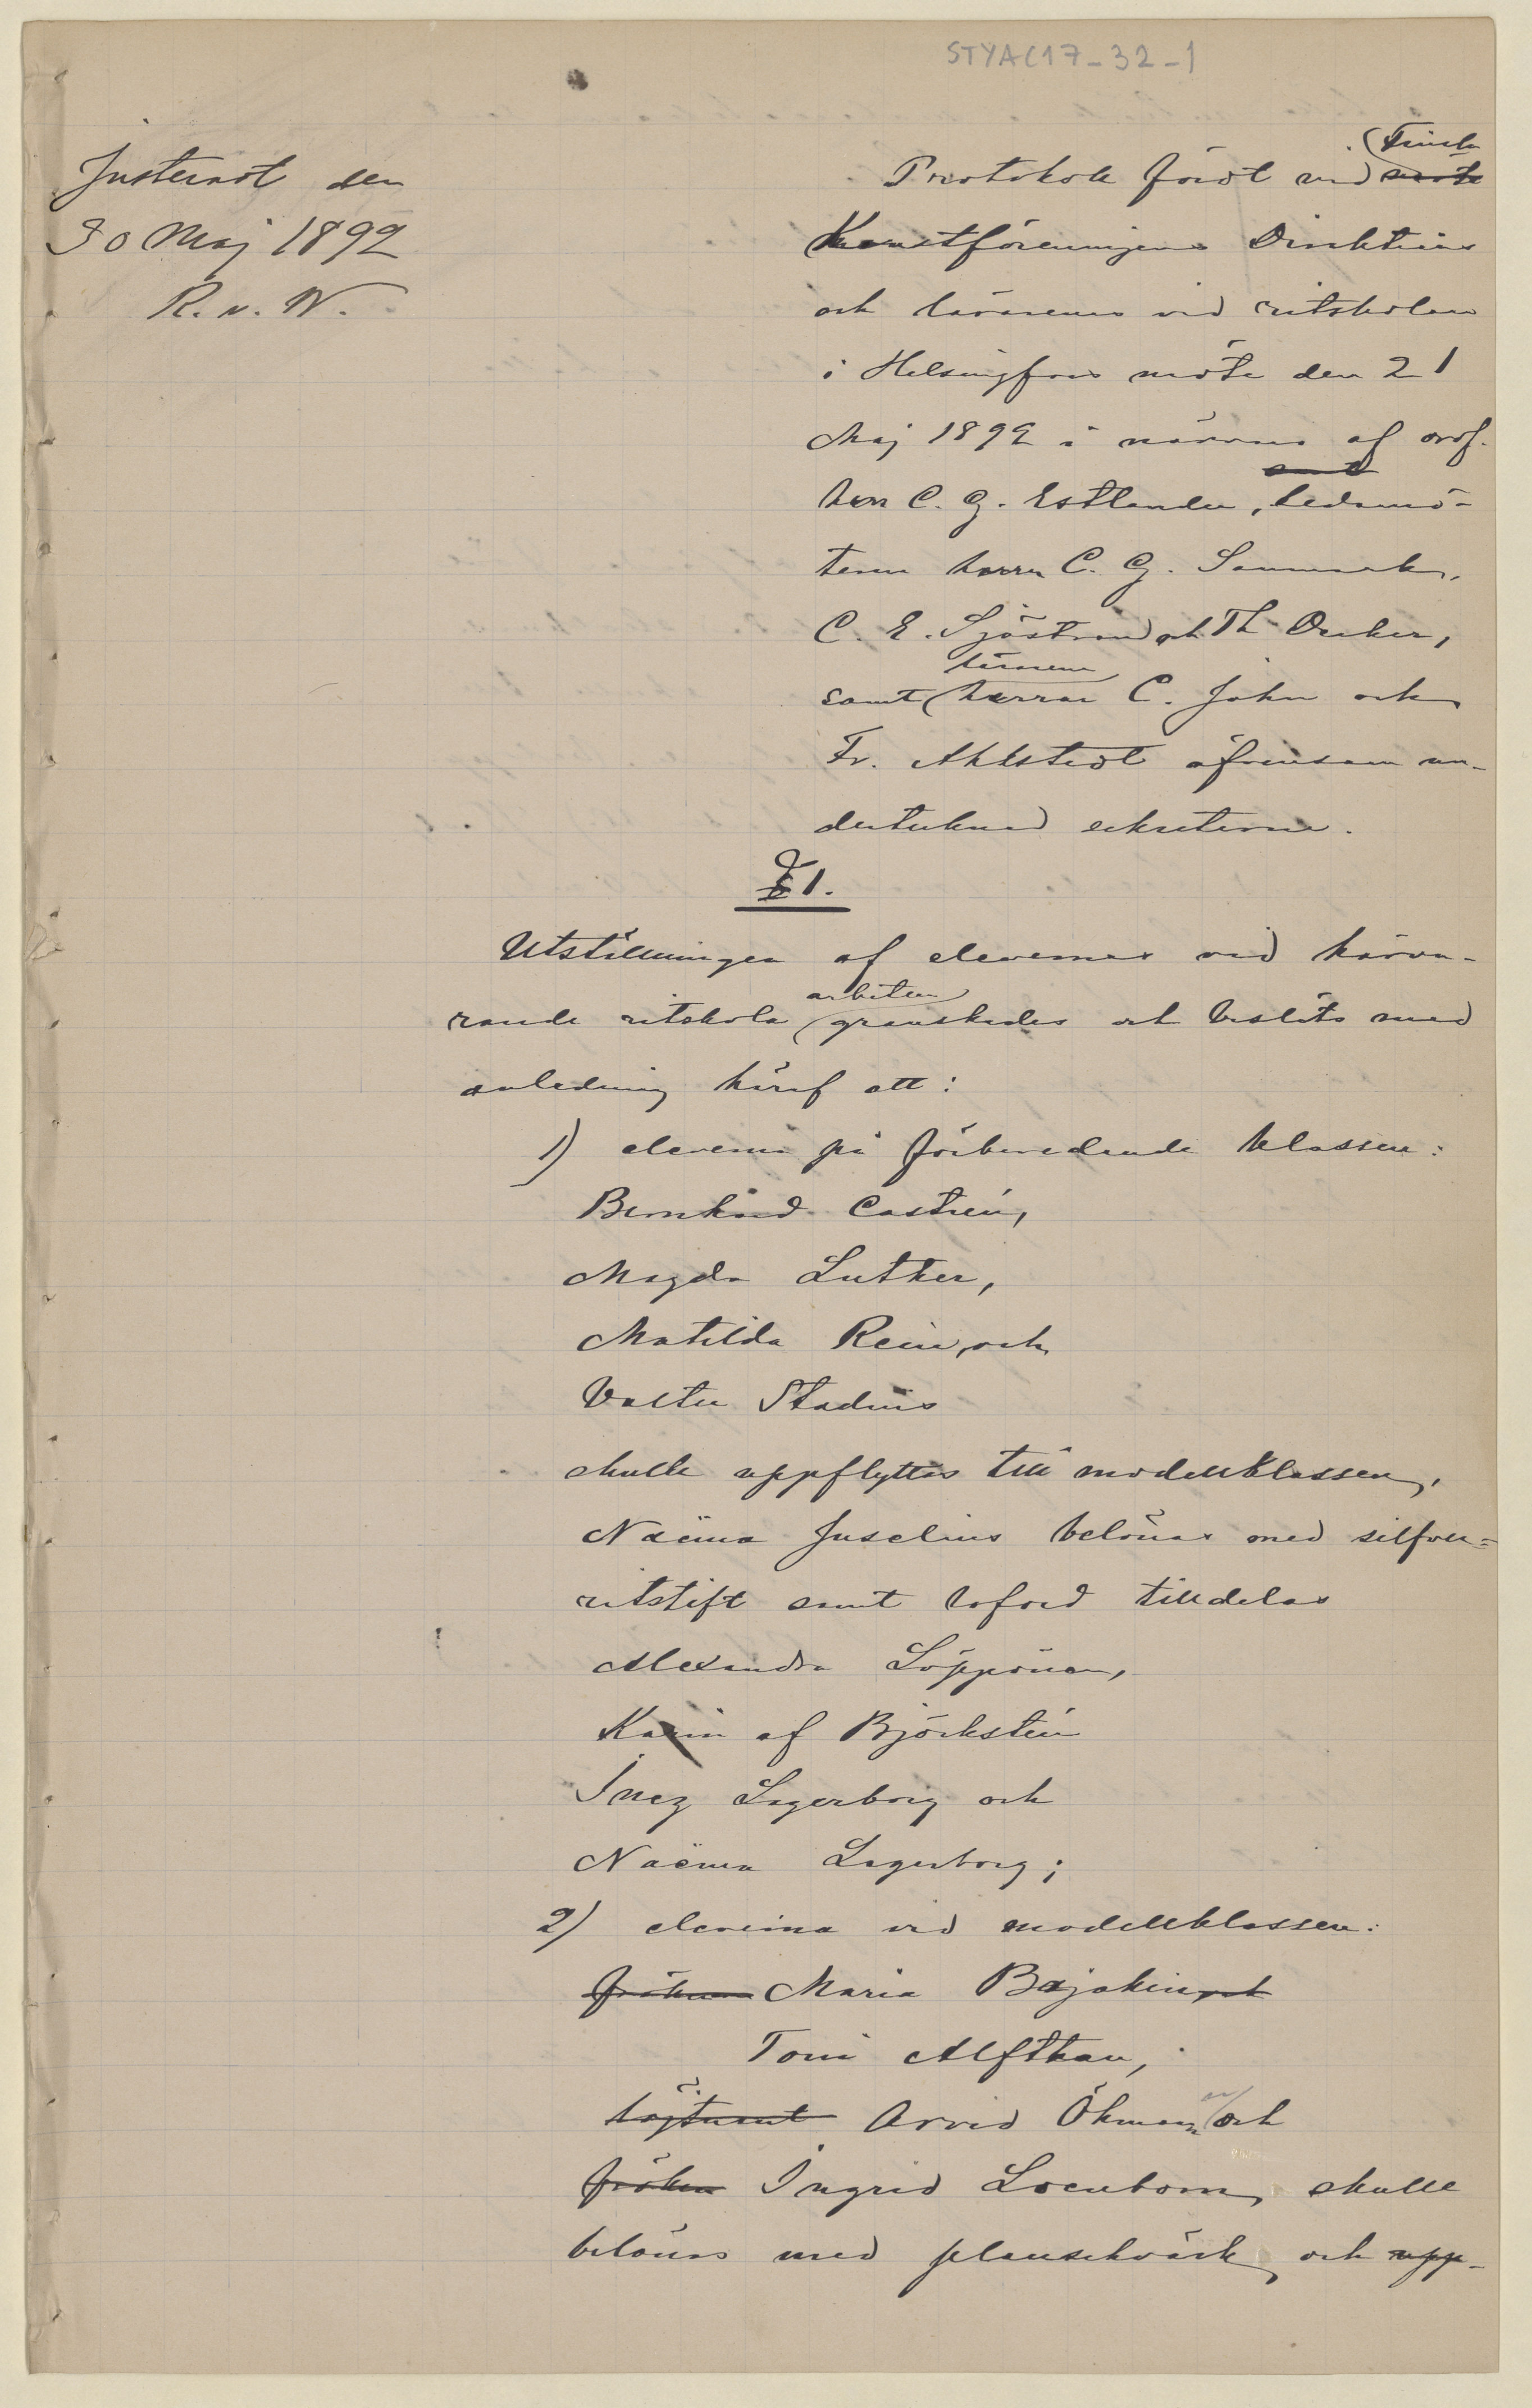 STYAC17-32-1
Justeradt den
30 Maj 1892
R. v. W.
Finska
Protokoll fördt vid möte
Konstföreningens Direktions
och lärarenes vid ritskolan
i Helsingfors möte den 21
Maj 1892 i närvaro af ordf.
samt
herr C. G. Estlander, ledamö-
terne herrar C. G. Sanmark,
C. E. Sjöstrand och Th Decker,
lärarene
samt herrar C. Jahn och
Fr. Ahlstedt äfvensom un-
dertecknad sekreterare.
§ 1.
Utställningen af elevernes vid härva-
arbeten
rande ritskola granskades och beslöts med
anledning häraf att:
1) eleverna på förberedande klassen:
Bernhard Castrén,
Magda Luther,
Matilda Rein, och
Valter Stadius
skulle uppflyttas till modellklassen,
Naëma Juselius belönas med silfver-
ritstift samt loford tilldelas
Alexandra Löppönen,
Karin af Björkstén
Inez Lagerborg och
Naëma Lagerborg;
2) eleverna vid modellklassen:
fröknarna Maria Bajakin och
Toni Alfthan,
löjtnant Arvid Öhman och
fröken Ingrid Locnbom, skulle
belönas med planschvärk och upp-